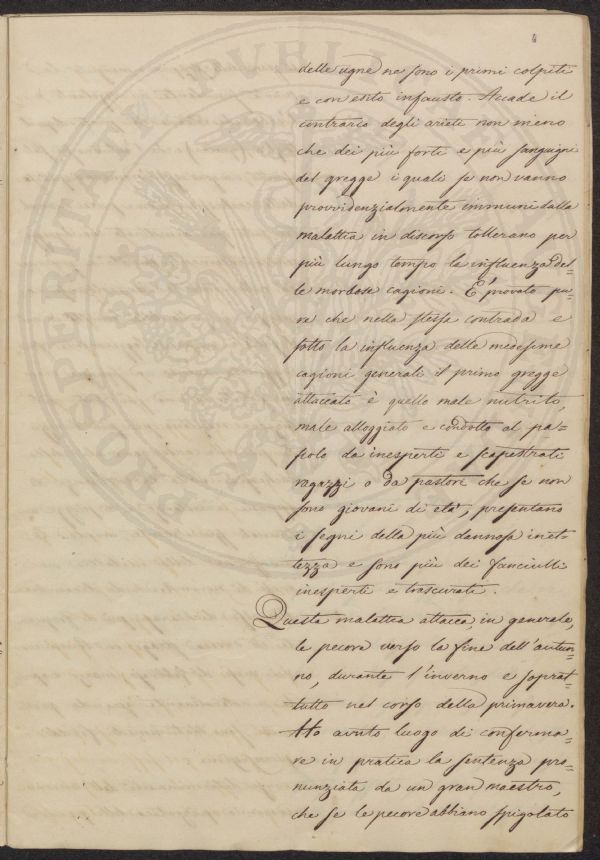 4
delle agne ne sono i primi colpiti
e con esito infausto. Accade il
contrario degli arieti non meno
che dei più forti e più sanguigni
del gregge i quali se non vanno
provvidenzialmente immuni dalla
malattia in discorso tollerano per
più lungo tempo la influenza del=
le morbose cagioni. E' provato pu=
re che nella stessa contrada e
sotto la influenza delle medesime
cagioni generali il primo gregge
attaccato è quello male nutrito,
male alloggiato e condotto al pa=
scolo da inesperti e scapestrati
ragazzi o da pastori che se non
sono giovani di età, presentano
i segni della più dannosa inet=
tezza e sono più dei fanciulli
inesperti e trascurati.
Questa malattia attacca, in generale,
le pecore verso la fine dell'autun=
no, durante l'inverno e soprat=
tutto nel corso della primavera.
Ho avuto luogo di conferma=
re in pratica la sentenza pro=
nunziata da un gran maestro,
che se le pecore abbiano spigolato